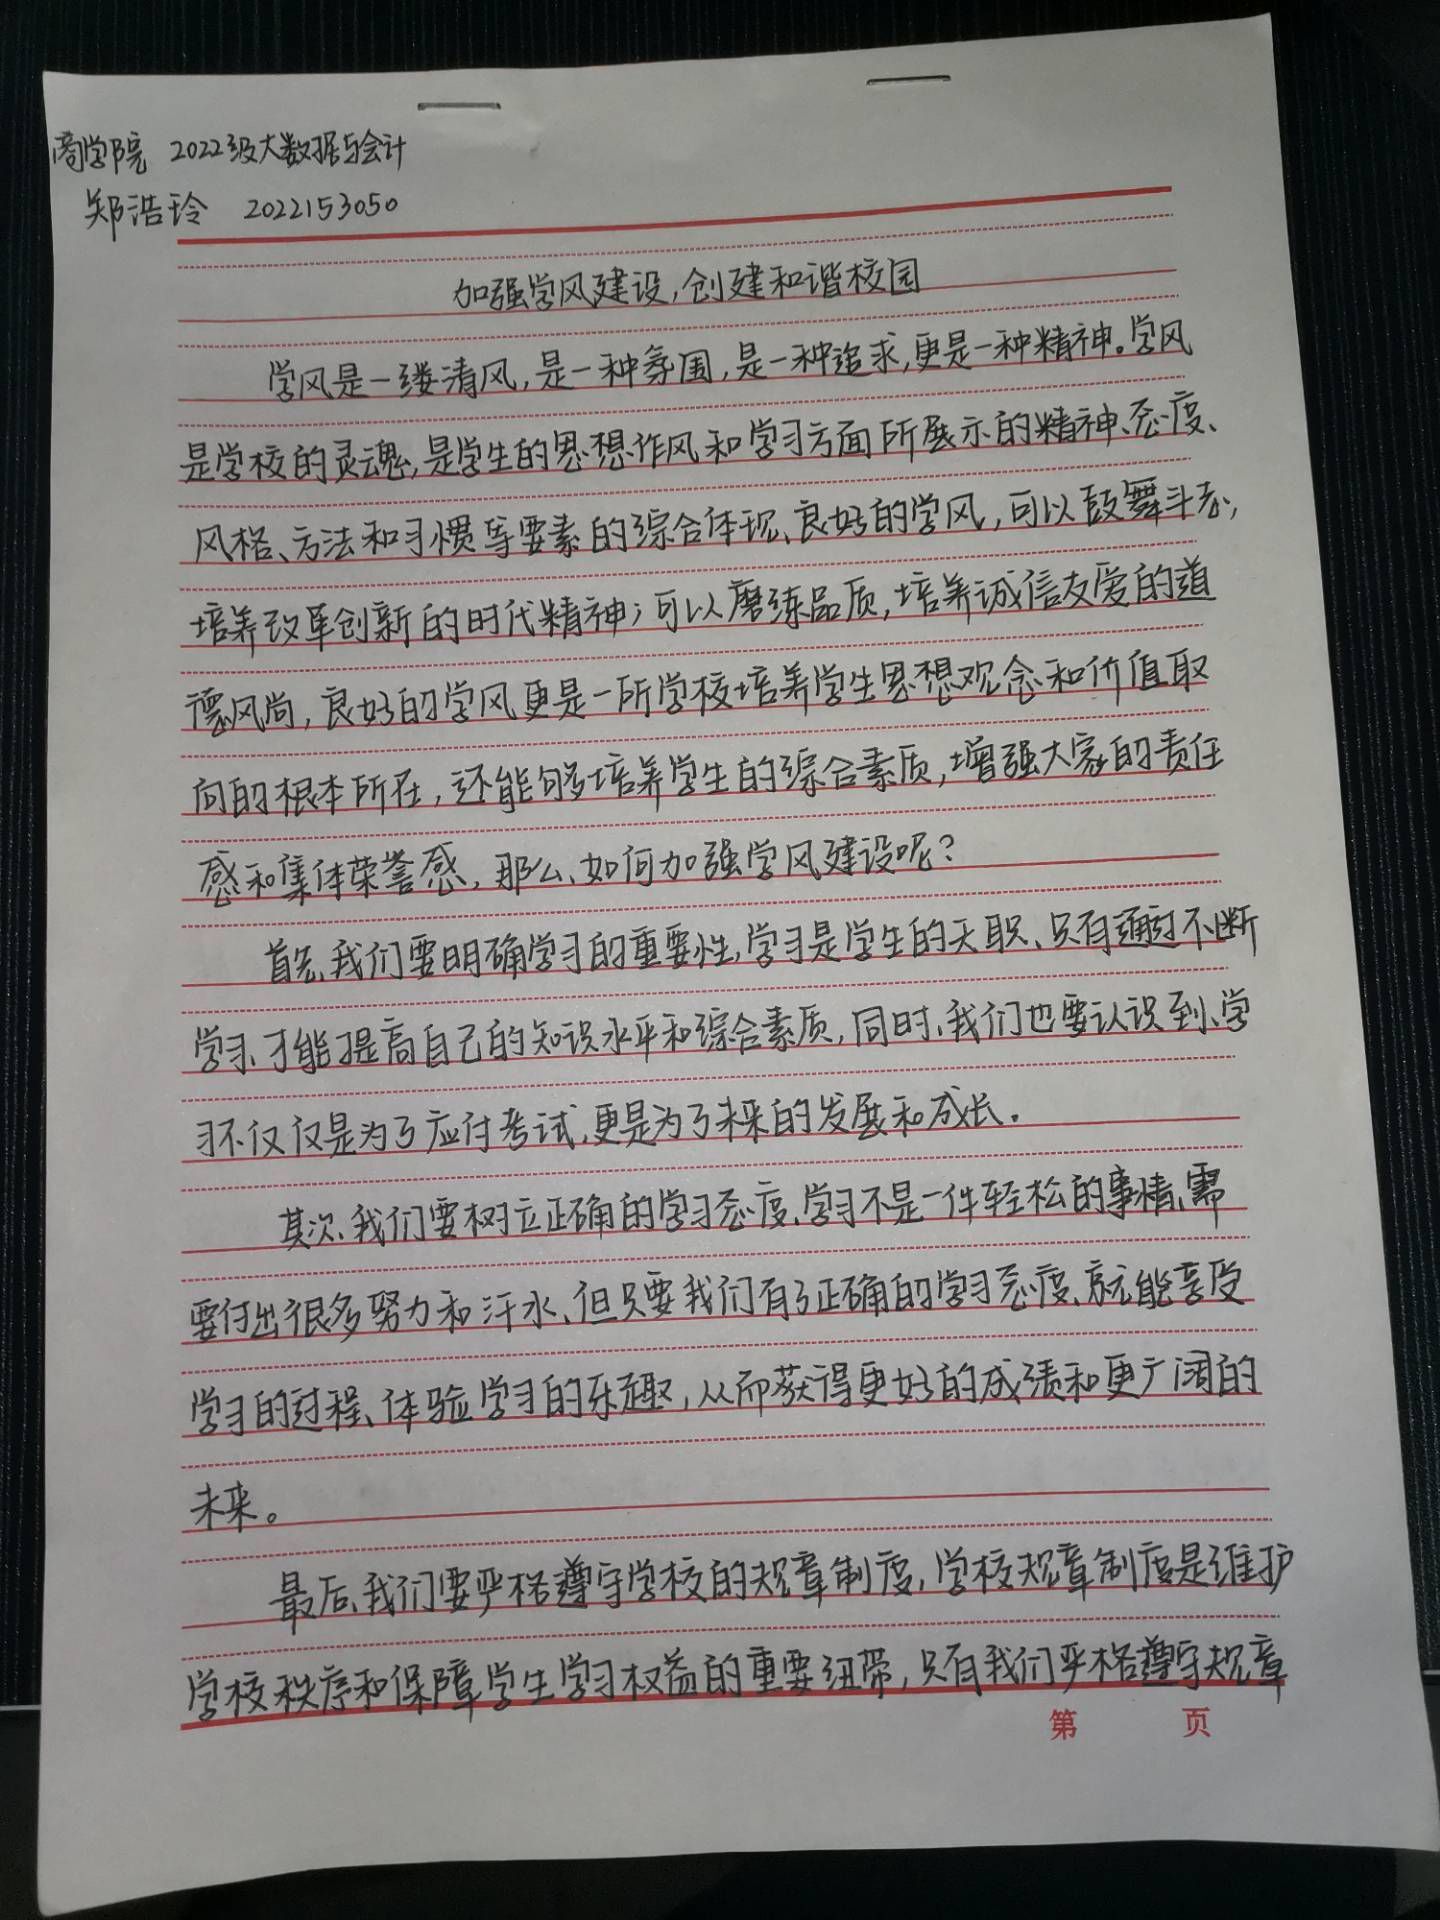 商学院 2022级大数据与会计
郑浩玲 2022153050
加强学风建设,创建和谐校园
学风是一缕清风,是一种氛围,是一种追求,更是一种精神。学风
是学校的灵魂,是学生的思想作风和学习方面所展示的精神、态度、
风格、方法和习惯等要素的综合体现、良好的学风,可以鼓舞斗志,
培养改革创新的时代精神;可以磨练品质,培养诚信友爱的道
德风尚,良好的学风更是一所学校培养学生思想观念和价值取
向的根本所在,还能够培养学生的综合素质,增强大家的责任
感和集体荣誉感,那么、如何加强学风建设呢?
首先、我们要明确学习的重要性,学习是学生的天职、只有通过不断
学习、才能提高自己的知识水平和综合素质,同时、我们也要认识到、学
习不仅仅是为了应付考试,更是为了未来的发展和成长.
其次、我们要树立正确的学习态度、学习不是一件轻松的事情、需
要付出很多努力和汗水、但只要我们有了正确的学习态度、就能享受
学习的过程、体验学习的乐趣,从而获得更好的成绩和更广阔的
未来。
最后、我们要严格遵守学校的规章制度,学校规章制度是维护
学校秩序和保障学生学习权益的重要纽带,只有我们严格遵守规章
第 页